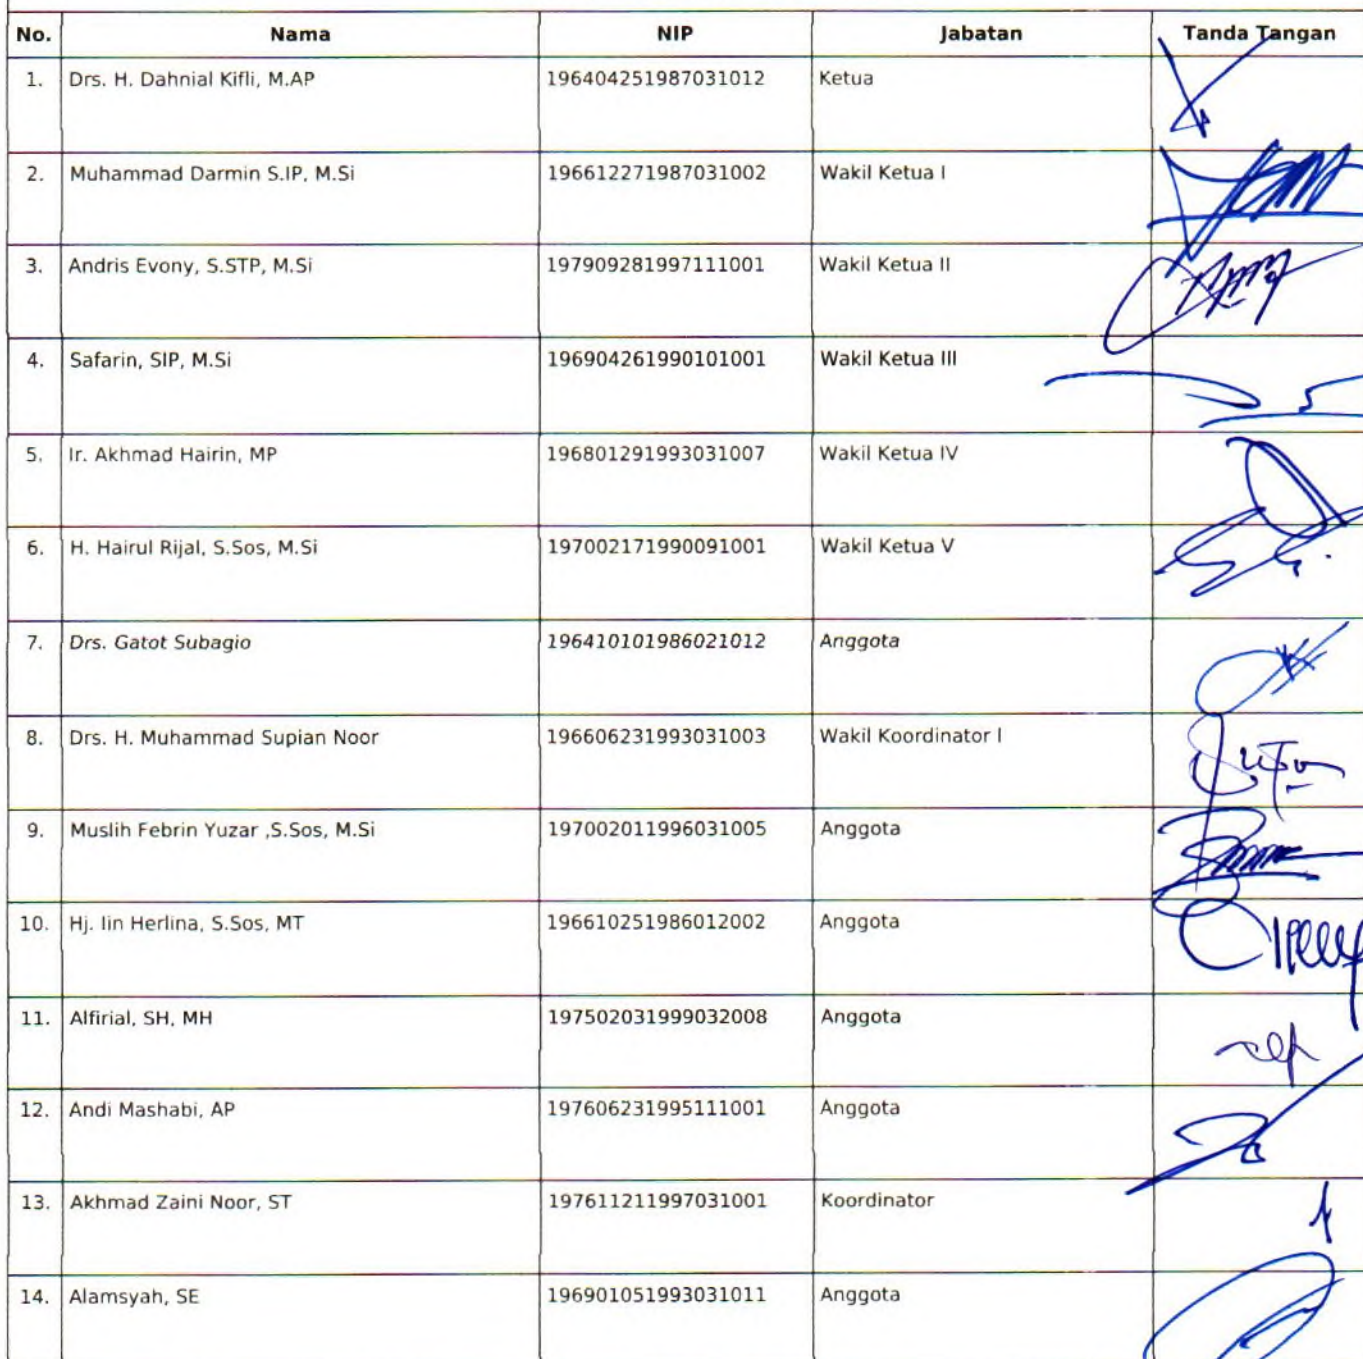 No. Nama NIP Jabatan Tanda Tangan
1. Drs. H. Dahnial Kifli, M.AP 196404251987031012 Ketua
2. Muhammad Darmin S.IP, M.Si 196612271987031002 Wakil Ketua I
3. Andris Evony, S.STP, M.Si 197909281997111001 Wakil Ketua II
4. Safarin, SIP, M.Si 196904261990101001 Wakil Ketua III
5. Ir. Akhmad Hairin, MP 196801291993031007 Wakil Ketua IV
6. H. Hairul Rijal, S.Sos, M.Si 197002171990091001 Wakil Ketua V
7. Drs. Gatot Subagio 196410101986021012 Anggota
8. Drs. H. Muhammad Supian Noor 196606231993031003 Wakil Koordinator I
9. Muslih Febrin Yuzar ,S.Sos, M.Si 197002011996031005 Anggota
10. Hj. Iin Herlina, S.Sos, MT 196610251986012002 Anggota
11. Alfirial, SH, MH 197502031999032008 Anggota
12. Andi Mashabi, AP 197606231995111001 Anggota
13. Akhmad Zaini Noor, ST 197611211997031001 Koordinator
14. Alamsyah, SE 196901051993031011 Anggota